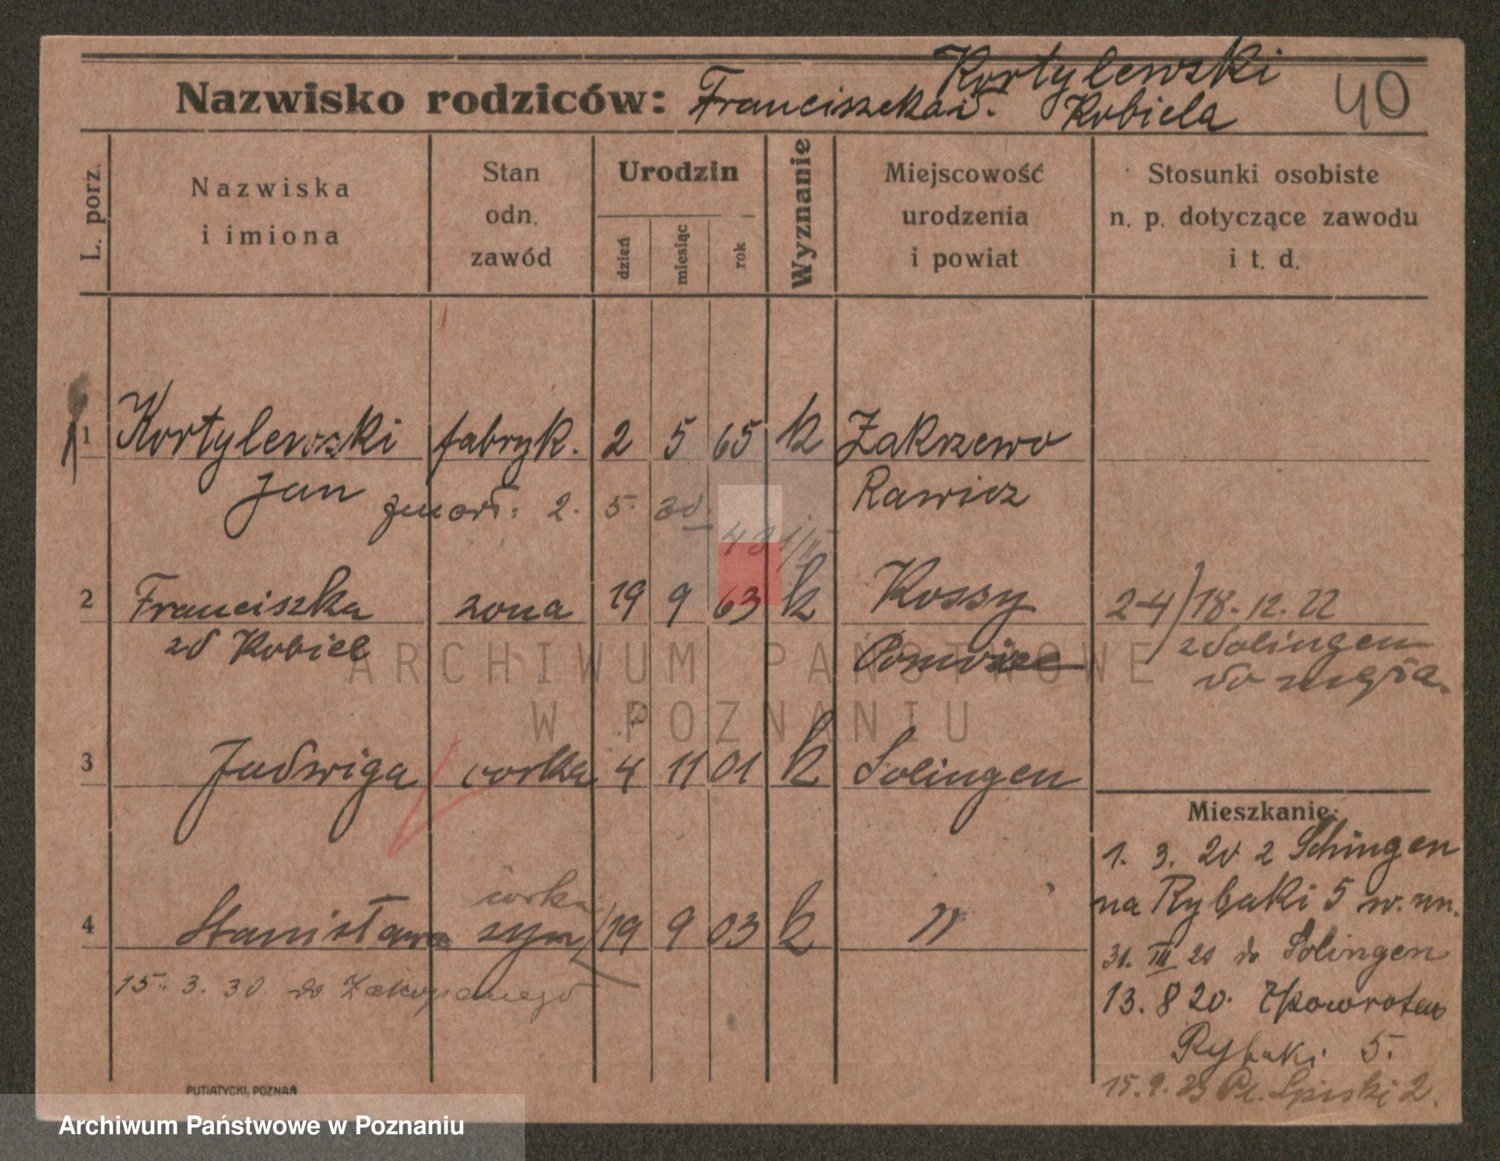 Kortylewski
Nazwisko rodziców: Franciszka i. Kobiela
40
L. porz.
Nazwiska i imiona
Stan odn. zawód
Urodzin
dzień
miesiąc
rok
Wyznanie
Miejscowość urodzenia i powiat
Stosunki osobiste n. p. dotyczące zawodu i t. d.
1 Kortylewski fabryk. 2 5 65 k Zakrzewo
Jan zmarł: 2. 5. 30. Rawicz
2 Franciszka zona 19 9 63 k Kossy 24/18.12.22
zd Kobiel z Solingen
do męża.
3 Jadwiga corka 4 11 01 k Solingen
Mieszkanie:
1. 3. 20 z Solingen
na Rybaki 5 w. m.
córka
4 Stanisława syn 19 9 03 k "
31. III 20 do Solingen
15. 3. 30. do Zakopanego
13. 8 20. zpowrotem
Rybaki 5.
15.9.23 Pl. 2.
PUTIATYCKI, POZNAŃ
ARCHIWUM PAŃSTWOWE
W POZNANIU
Archiwum Państwowe w Poznaniu